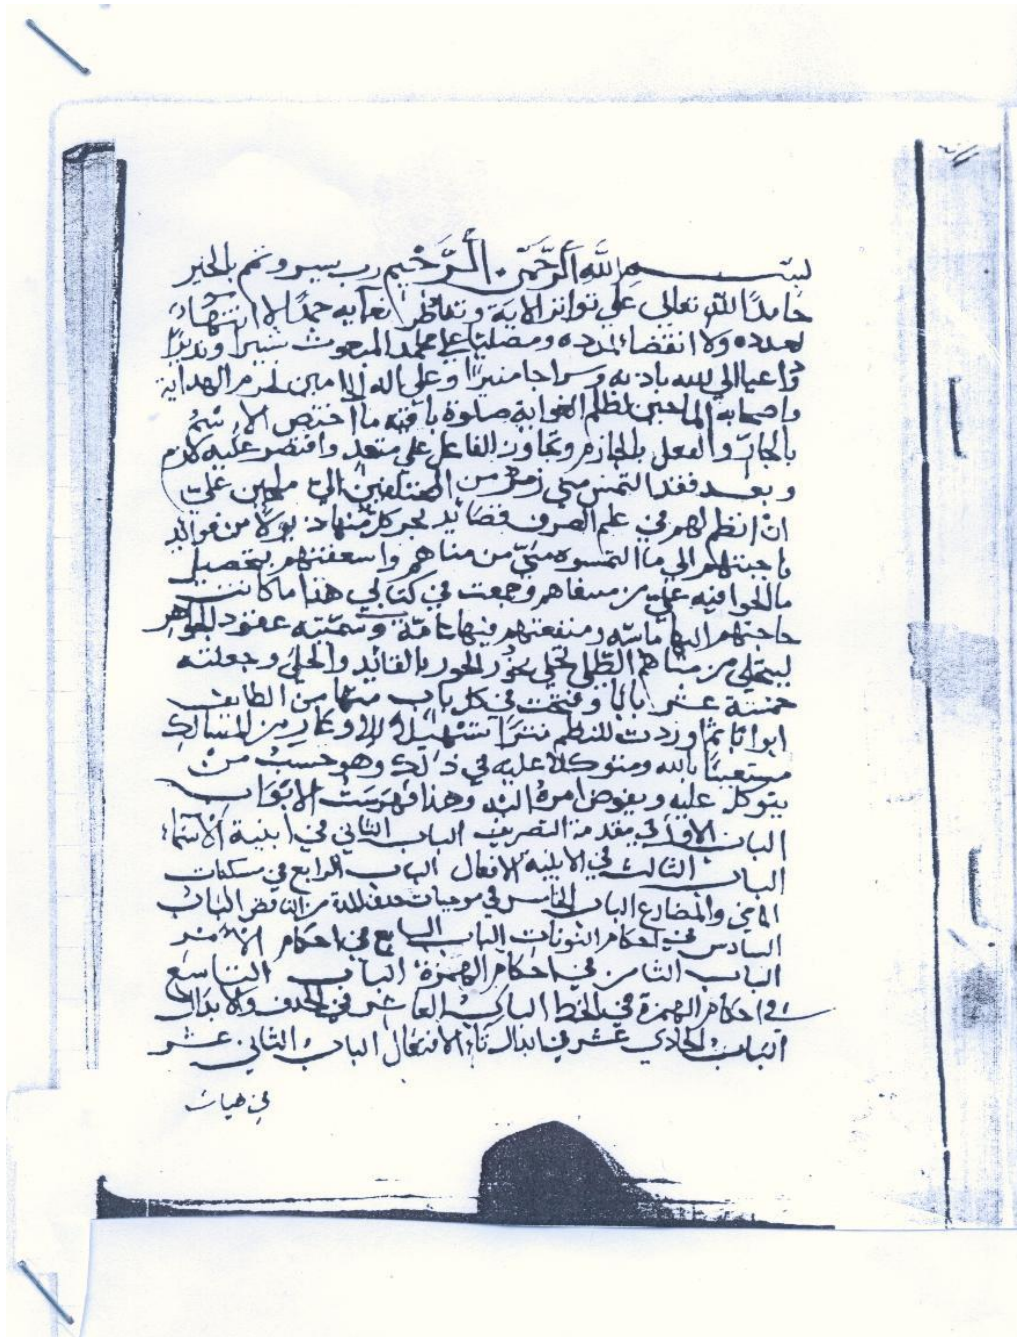 بسم اللَّهِ الرَّحْمَنِ الرَّحِيمِ رب يسر وتمم بالخير
حامدًا للّٰه تعالى على تواتر الاية وتقاطر نعمايه حمدًا لا انتهاء
لعدده ولا انقضاء لمدده ومصليًا على محمد المبعوث بشيرا ونذيرًا
وداعيا الي الله باذنه وسراجا منيرًا وعلى اله الامين لحرم الهداية
واصحابه الماحين لظلم الغواية صلوة باقية ما اختص الاسم
بالجارّ والفعل بالجازم وتجاوز الفاعل على متعد واقتصر عليه لازم
وبعد فقد التمس مني زمرة من المختلفين الىّ ملحين علىّ
انْ انظم لهم في علم الصرف قصايد يجر كل منها ذيولًا من فوايد
فاجبتهم الي ما التمسوه منيّ من مناهم واسعفتهم بتحصيل
ما الحوا فيه علىّ من مسعاهم وجمعت في كتابي هذا ما كانت
حاجتهم اليها ماسّه ومنفعتهم فيها عامّة وسمّيته عقود الجواهر
ليتحلى من نظم الطُلى تحلي نحور الحور بالقلايد والحلى وجعلته
خمسة عشر بابًا وفتحت في كل باب منها من الطايف
ابوابا ثم اوردت للنظم نثرًا تسْهيلًا للاوعار من المسالك
مستعينًا بالله ومتوكلا عليه في ذلك وهو حسبُ منْ
يتوكل عليه ويفوض امرهُ اليه وهذا فهرست الابوَاب
الباب الاول في مقدمة التصريف الباب الثاني في ابنية الاسْماء
الباب الثالث في الابنيه الافعال الباب الرابع في مسكنات
الماضي والمضارع الباب الخامس في موجبات حذف المدة من الناقص الباب
السادس في احكام النونات الباب السابع في احكام الامر
الباب الثامن في احكام الهمزة الباب التاسع
في احكام الهمزة في الخط الباب العاشر في الحذف والابدال
الباب الحادي عشر في ابدال تاء الافتعال الباب الثاني عشر
في هيات